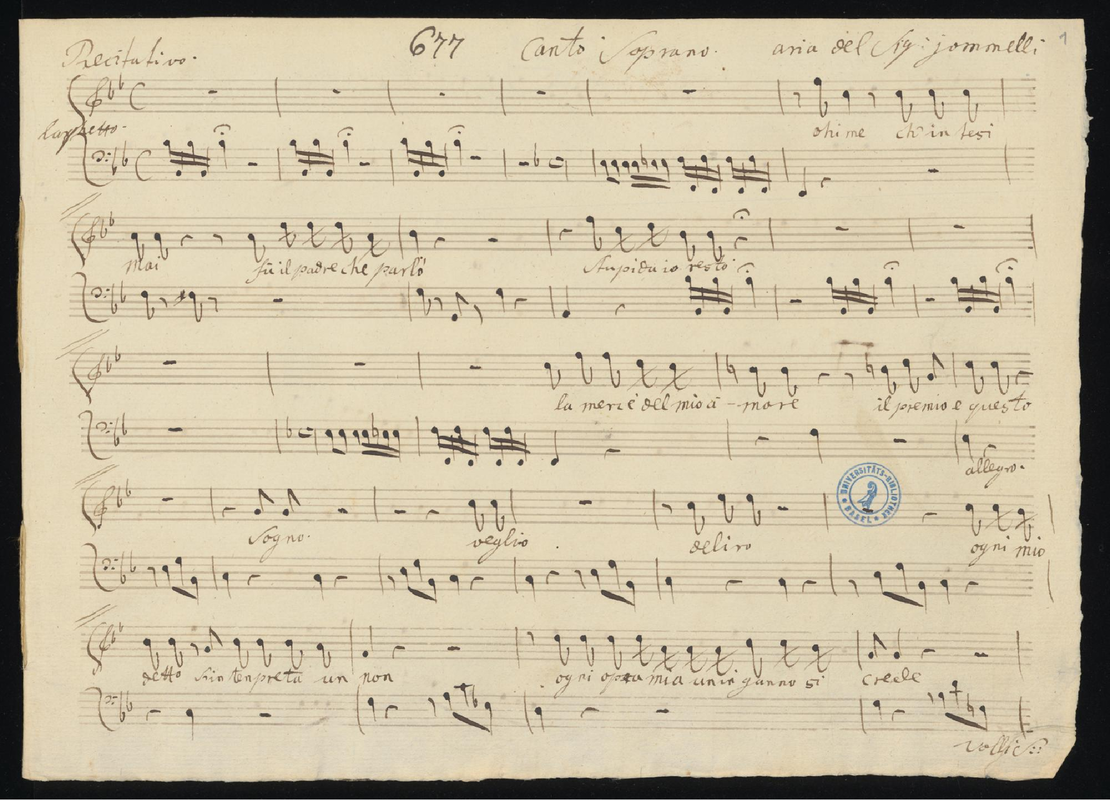 Recitativo. 677 Canto Soprano. aria del Sigr: Jommelli 1
larghetto.
ohime ch'intesi
mai fù il padre che parlò stupida io resto
la mercè del mio a-more il premio e questo
allegro.
UNIVERSITÄTS-BIBLIOTHEK BASEL
Sogno. veglio deliro ogni mio
detto s'intenpreta un non ogni opra mia un inganno si crede